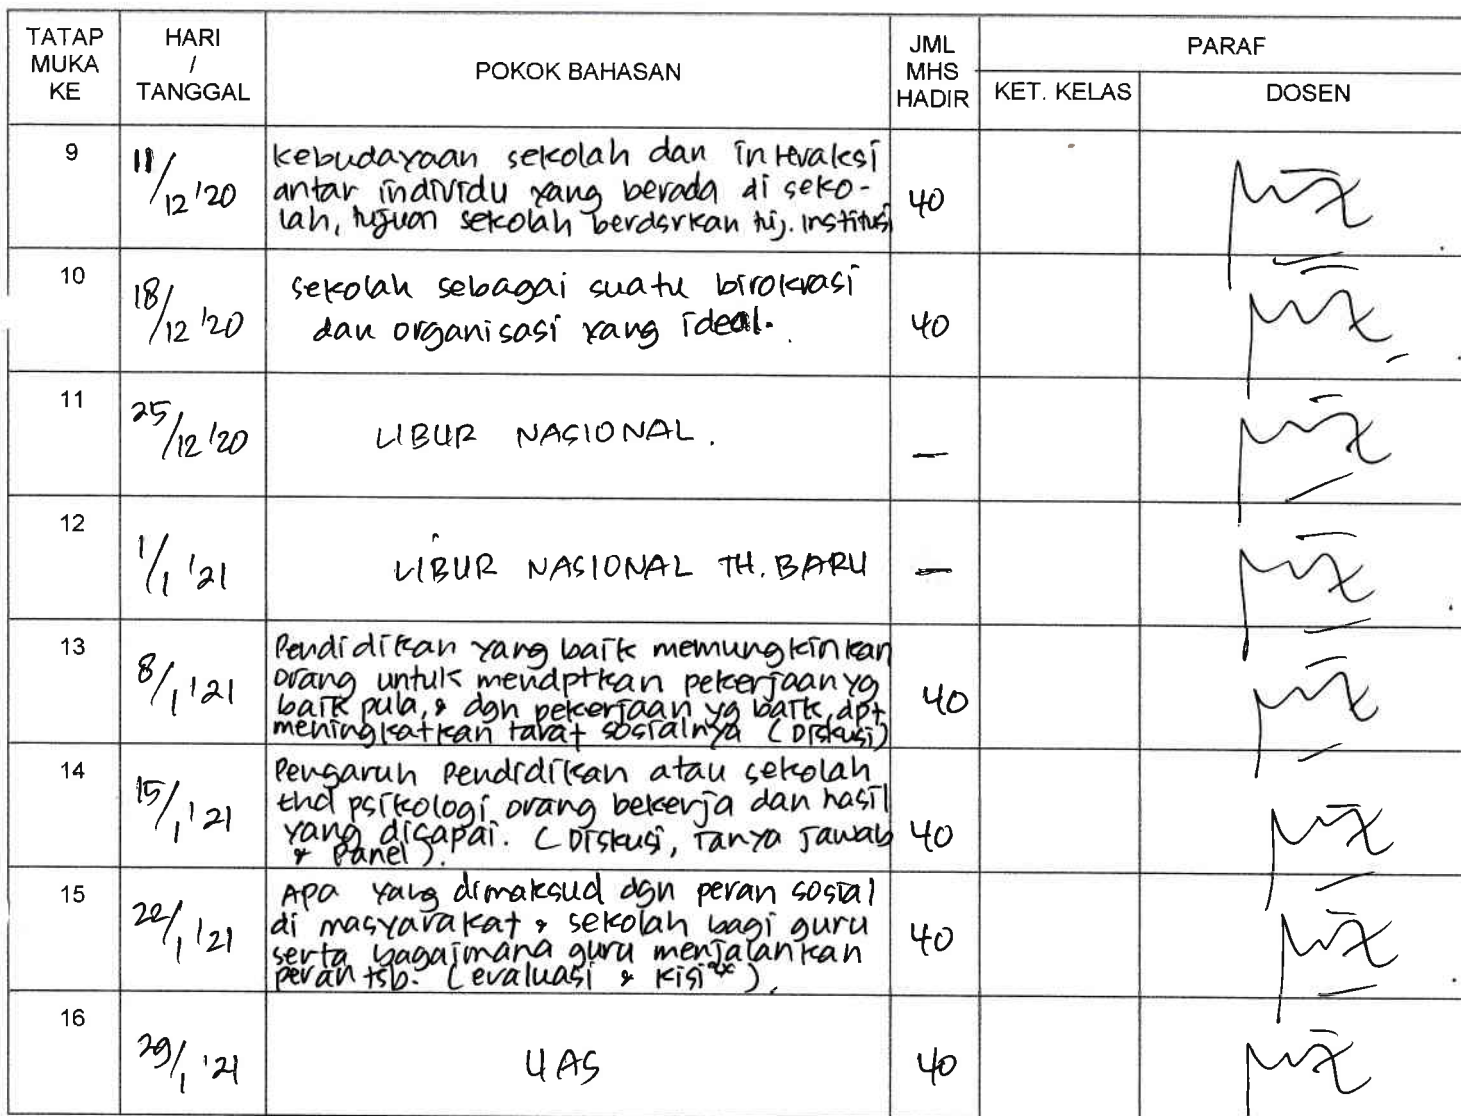 TATAP MUKA KE
HARI / TANGGAL
POKOK BAHASAN
JML MHS HADIR
PARAF
KET. KELAS
DOSEN
9
11/12 '20
kebudayaan sekolah dan interaksi
antar individu yang berada di seko-
lah, tujuan sekolah berdsrkan tuj. institusi
40
10
18/12 '20
sekolah sebagai suatu birokrasi
dan organisasi yang ideal.
40
11
25/12 '20
LIBUR NASIONAL.
—
12
1/1 '21
LIBUR NASIONAL TH. BARU
—
13
8/1 '21
Pendidikan yang baik memungkinkan
orang untuk mendptkan pekerjaan yg
baik pula, & dgn pekerjaan yg baik, dpt
meningkatkan taraf sosialnya (Diskusi)
40
14
15/1 '21
Pengaruh Pendidikan atau sekolah
thd psikologi orang bekerja dan hasil
yang dicapai. (Diskusi, Tanya Jawab
& Panel).
40
15
22/1 '21
Apa yang dimaksud dgn peran sosial
di masyarakat & sekolah bagi guru
serta bagaimana guru menjalankan
peran tsb. (evaluasi & kisi²)
40
16
29/1 '21
UAS
40